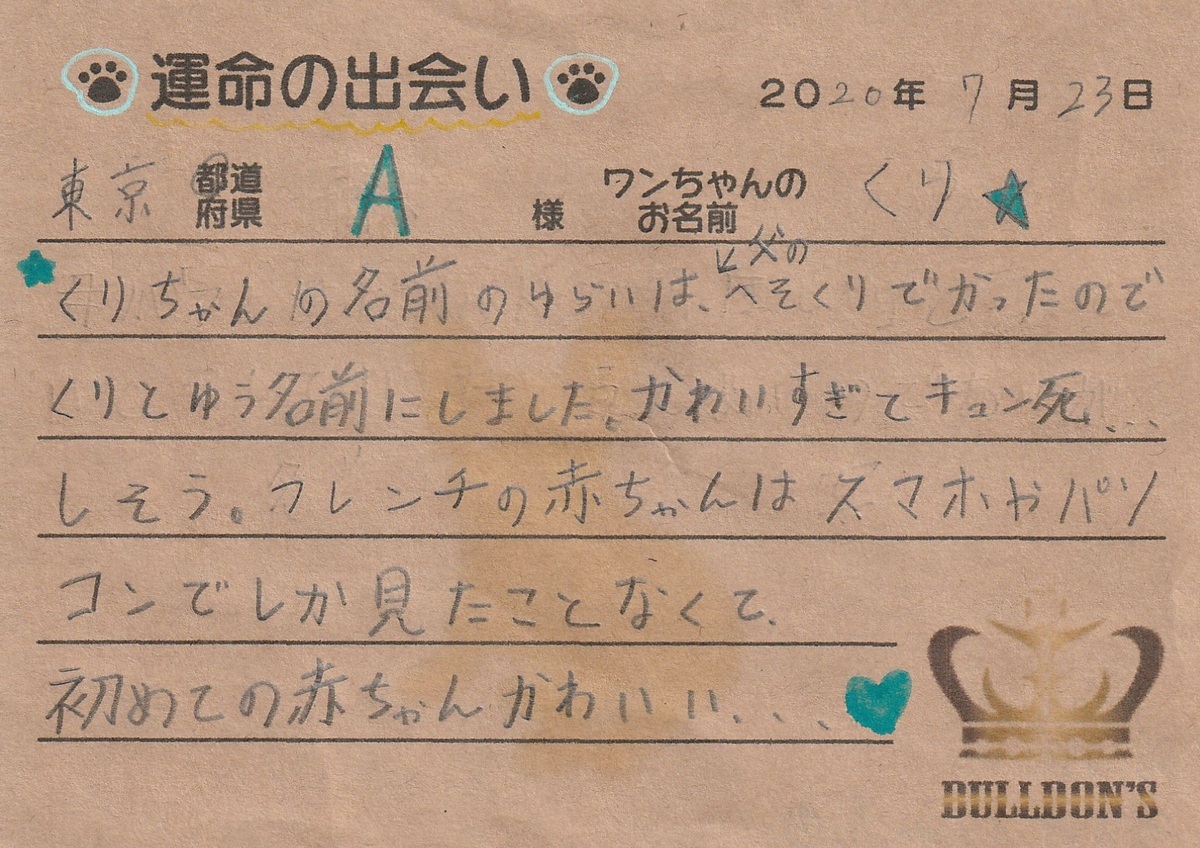 運命の出会い
2020年 7月 23日
東京 都道府県 A 様 ワンちゃんのお名前 くり
父の
くりちゃんの名前のゆらいは、へそくりでかったので
くりとゆう名前にしました。かわいすぎてキュン死...
しそう。フレンチの赤ちゃんはスマホやパソ
コンでしか見たことなくて、
初めての赤ちゃんかわいい、、、、
BULLDON'S